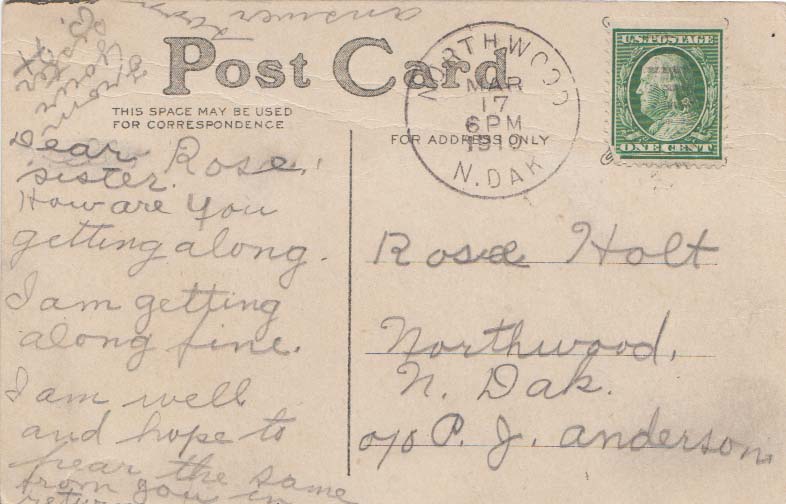 Post Card
THIS SPACE MAY BE USED
FOR CORRESPONDENCE
FOR ADDRESS ONLY
NORTHWOOD
MAR
17
6PM
1910
N. DAK
U.S. POSTAGE
ONE CENT
Dear Rose,
sister.
How are you
getting along.
I am getting
along fine.
I am well
and hope to
hear the same
from you in
return
answer soon
from
your
sister
Rose Holt
Northwood,
N. Dak.
c/o P. J. anderson